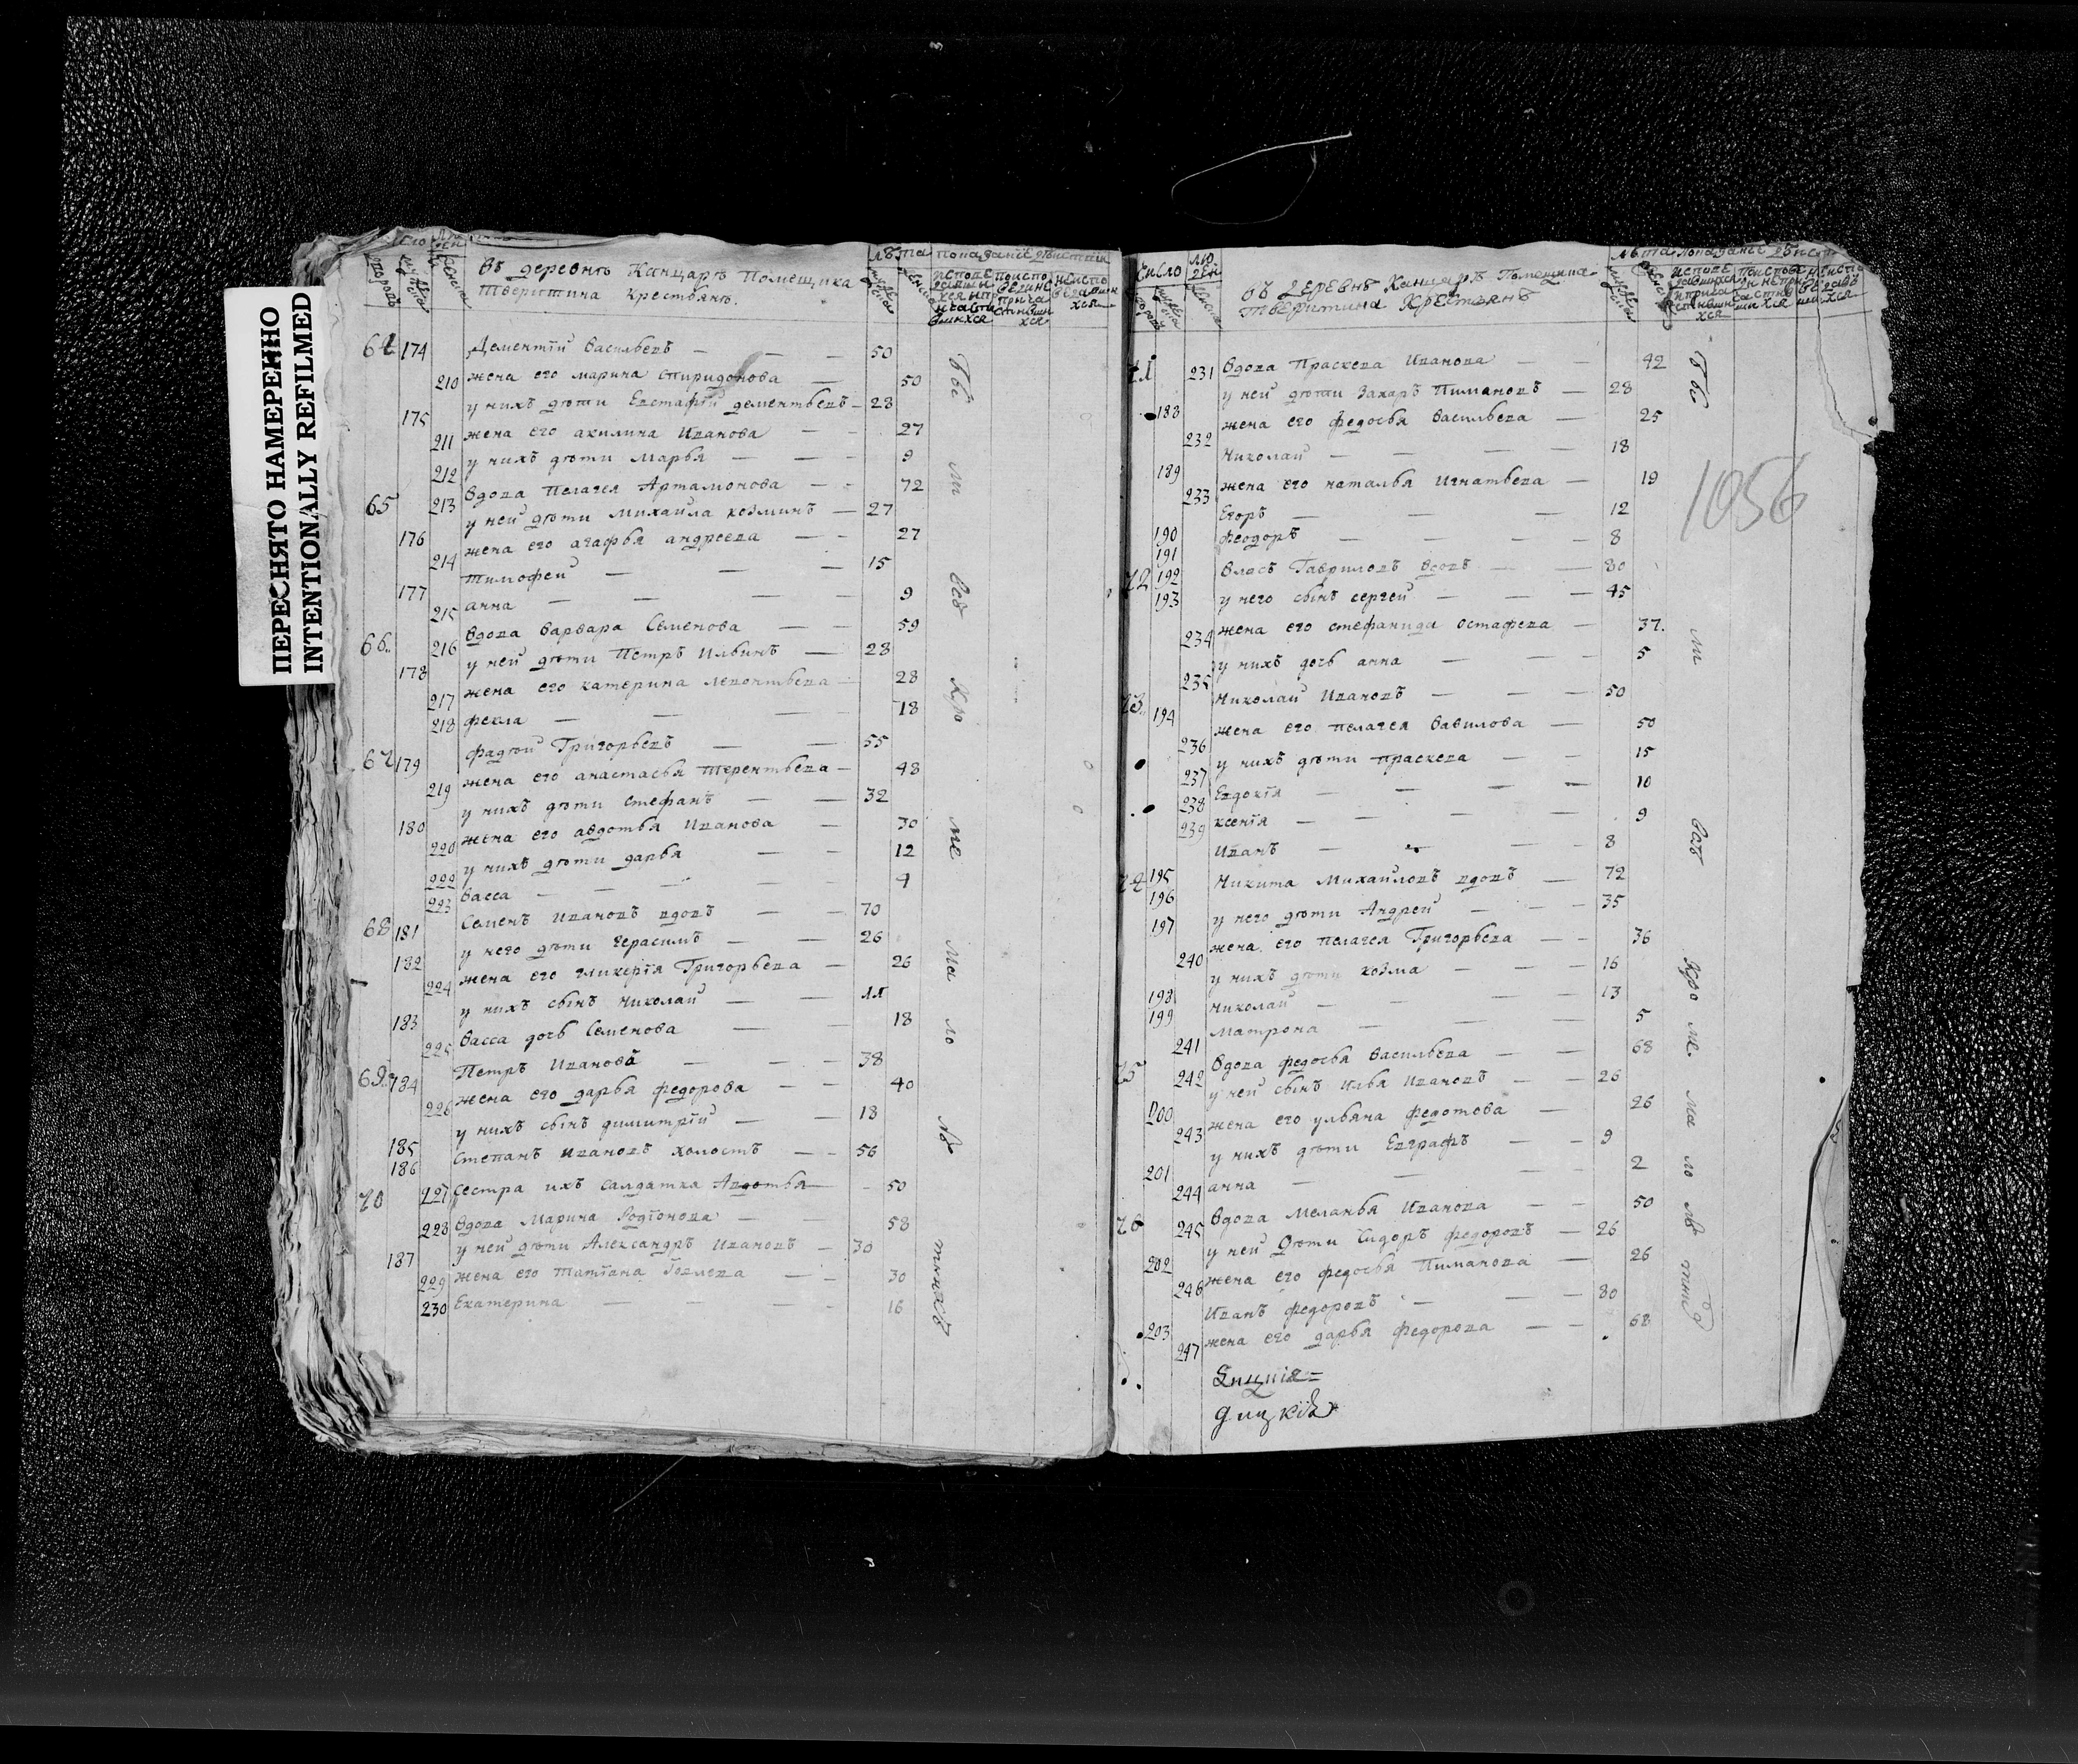 ПЕРЕСНЯТО НАМЕРЕННО
INTENTIONALLY REFILMED
въ деревнѣ Канцарѣ Помещика
Тверитина Крестьянъ.
лѣта показанїе дѣиствїи
64 174 Дементїй Васильевъ — 50
210 жена его марина спиридонова — 50
175 у нихъ дѣти Евстафїй дементьевъ — 28
211 жена его акилина Иванова — 27
212 у нихъ дѣти Марья — 9
65 213 Вдова Пелагея Артамонова — 72
176 у ней дѣти Михаила козминъ — 27
214 жена его агафья андреева — 27
177 тимофей — 15
215 анна — 9
66 216 Вдова Варвара Семенова — 59
178 у ней дѣти Петръ Ильинъ — 28
217 жена его катерина левонтьева 28
218 фекла — 18
67 179 фадѣй Григорьевъ — 55
219 жена его анастасья терентьева — 48
180 у нихъ дѣти стефанъ — 32
220 жена его авдотья Иванова — 30
222 у нихъ дѣти дарья — 12
223 Васса — 9
68 181 Семенъ Ивановъ вдовъ — 70
182 у него дѣти герасимъ — 26
224 жена его гликерїя Григорьева — 26
183 у нихъ сынъ Николай — 11
225 Васса дочь Семенова — 18
69 184 Петръ Ивановъ — 38
226 жена его дарья федорова — 40
185 у нихъ сынъ димитрїй — 18
186 Степанъ Ивановъ холостъ — 56
227 Сестра ихъ салдатка Авдотья — 50
70 228 Вдова Марина Родїонова — 58
187 у ней дѣти Александръ Ивановъ — 30
229 жена его Татїана 30
230 Екатерина — 16
въ деревнѣ Канцарѣ Помещика
Тверитина Крестьянъ
Число лю дей
лѣта показанїе
71 231 Вдова Праскева Иванова — 42
188 у ней дѣти Захаръ Пимановъ — 28
232 жена его федосья Васильева — 25
189 Николай — 18
233 жена его наталья Игнатьева — 19
190 Егоръ — 12
191 феодоръ — 8
72 192 Власъ Гавриловъ вдовъ — 80
193 у него сынъ сергей — 45
234 жена его стефанида остафева — 37.
235 у нихъ дочь анна — 5
73 194 Николай Ивановъ — 50
236 жена его пелагея Вавилова — 50
237 у нихъ дѣти праскева — 15
238 Евдокїя — 10
239 ксенїя — 9
195 Иванъ — 8
74 196 Никита Михайловъ вдовъ — 72
197 у него дѣти Андрей — 35
240 жена его пелагея Григорьева — 36
198 у нихъ дѣти козма — 16
199 николай — 13
241 матрона — 5
75 242 Вдова федосья Васильева — 68
200 у ней сынъ Илья Ивановъ — 26
243 жена его ульяна федотова — 26
201 у нихъ дѣти Евграфъ — 9
244 анна — 2
76 245 Вдова Меланья Иванова — 50
202 у ней Дѣти Сидоръ федоровъ — 26
246 жена его федосья Пиманова — 26
203 Иванъ федоровъ — 80
247 жена его дарья федорова — 68
1056